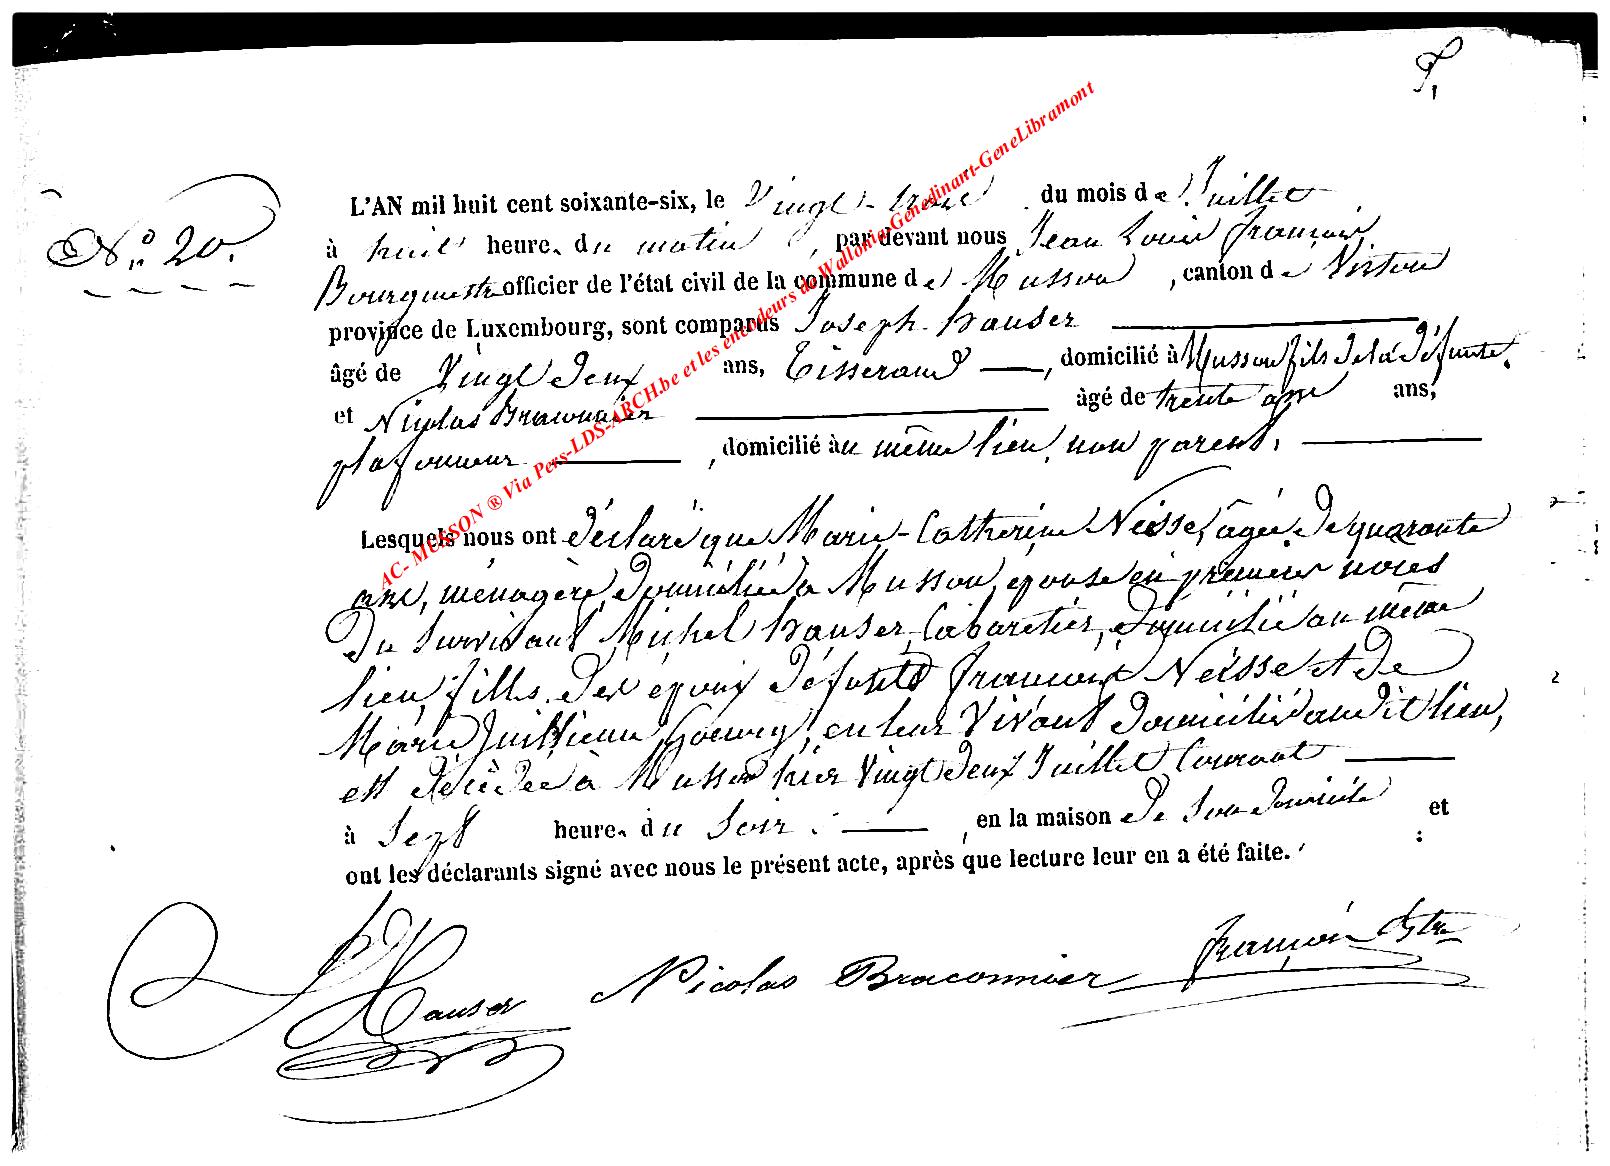 T.
N° 20.
L'AN mil huit cent soixante-six, le Vingt-trois du mois de Juillet
à huit heure. du matin, par devant nous Jean Louis François
Bourgmestre officier de l'état civil de la commune de Musson, canton de Virton
province de Luxembourg, sont comparus Joseph Hauser
âgé de Vingt deux ans, Tisserand, domicilié à Musson fils de la défunte.
et Nicolas Braconnier âgé de trente ans,
plafonneur, domicilié au même lieu, non parent.
Lesquels nous ont déclaré que Marie-Catherine Neisse, âgée de quarante
ans, ménagère, domiciliée à Musson, épouse en premières noces
du survivant Michel Hauser, Cabaretier, domicilié au même
lieu, fille des époux défunts François Neisse et de
Marie Goeury, en leur vivant domiciliés audit lieu,
est décédée à Musson hier Vingt deux Juillet Courant
à Sept heure. du Soir. en la maison de Son domicile et
ont les déclarants signé avec nous le présent acte, après que lecture leur en a été faite.
Hauser Nicolas Braconnier François
AC- MUSSON ® Via Pers-LDS-ARCH.be et les encodeurs de Wallonia-Genedinant-GeneLibramont